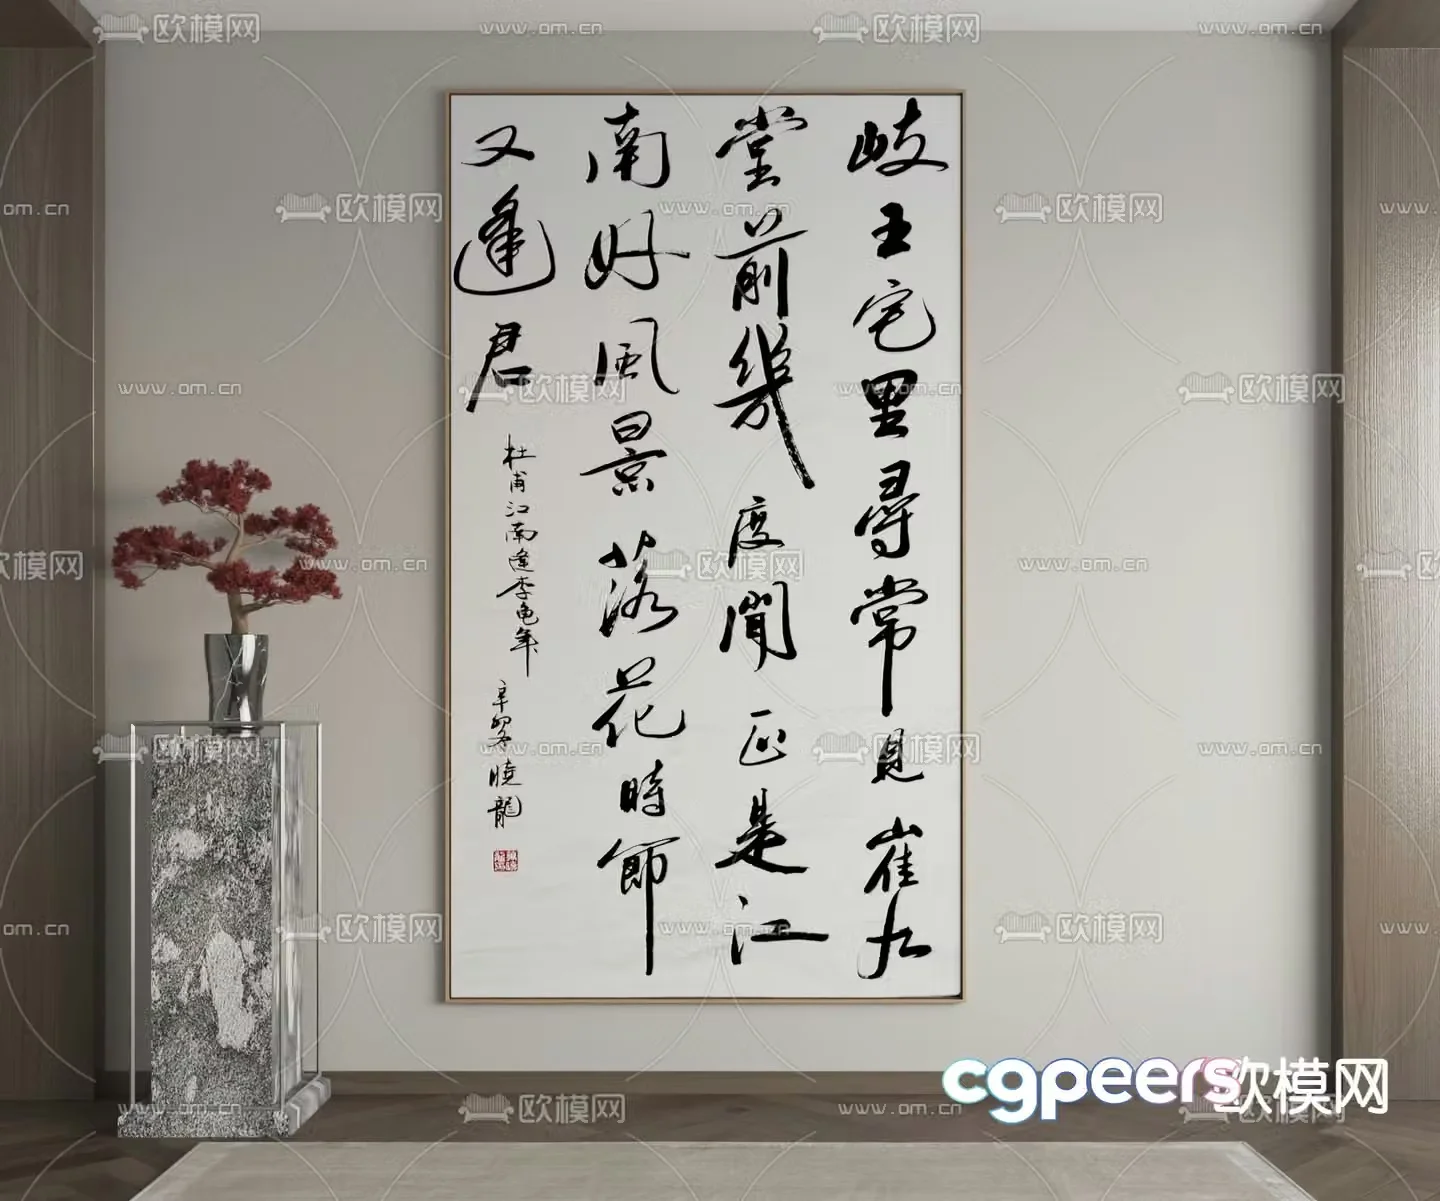 岐王宅里尋常見崔九
堂前幾度聞正是江
南好風景落花時節
又逢君
杜甫江南逢李龟年
辛卯冬曉龍
欧模网 www.om.cn
cgpeers 欧模网